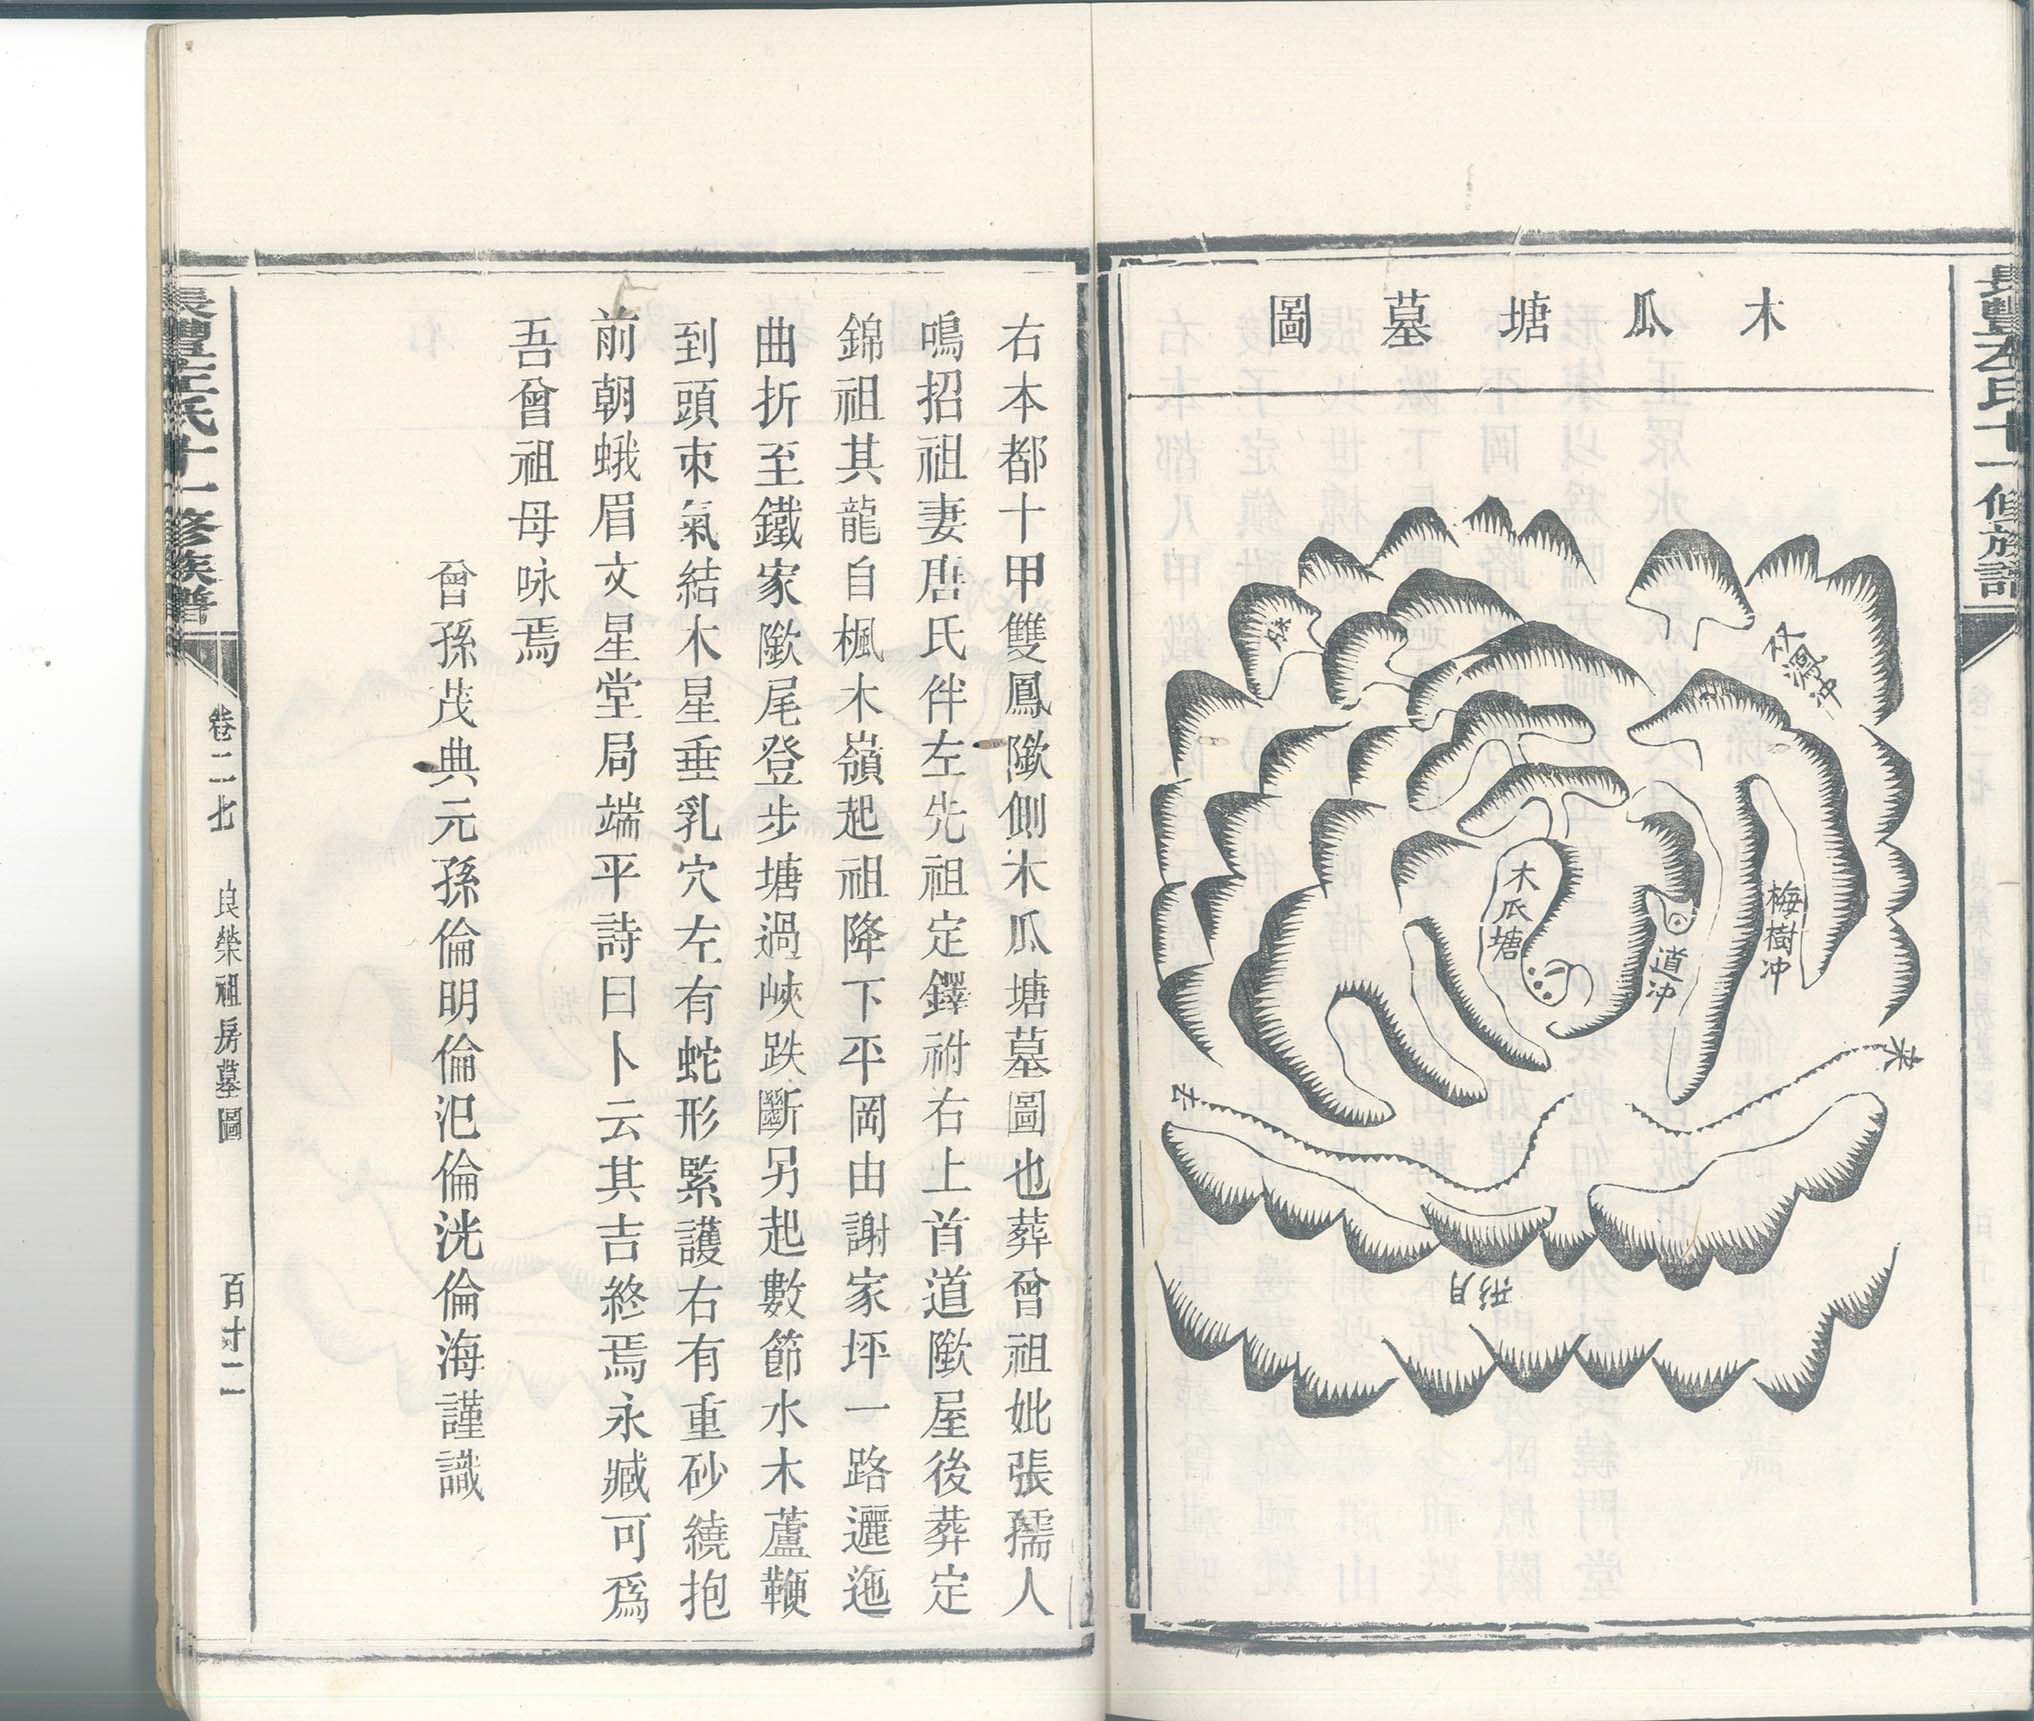 木瓜塘墓圖
双鳳冲
梅樹冲
道冲
木瓜塘
來
去
月形
右本都十甲雙鳳隞側木瓜塘墓圖也葬曾祖妣張孺人
鳴招祖妻唐氏伴左先祖定鐸祔右上首道隞屋後葬定
錦祖其龍自楓木嶺起祖降下平岡由謝家坪一路邐迤
曲折至鐵家隞尾登步塘過峽跌斷另起數節水木蘆鞭
到頭束氣結木星垂乳穴左有蛇形緊護右有重砂繞抱
前朝蛾眉文星堂局端平詩曰卜云其吉終焉永臧可爲
吾曾祖母咏焉
曾孫茂典元孫倫明倫汜倫洸倫海謹識
長豐左氏十一修族譜
卷二七
良榮祖房墓圖
百十二